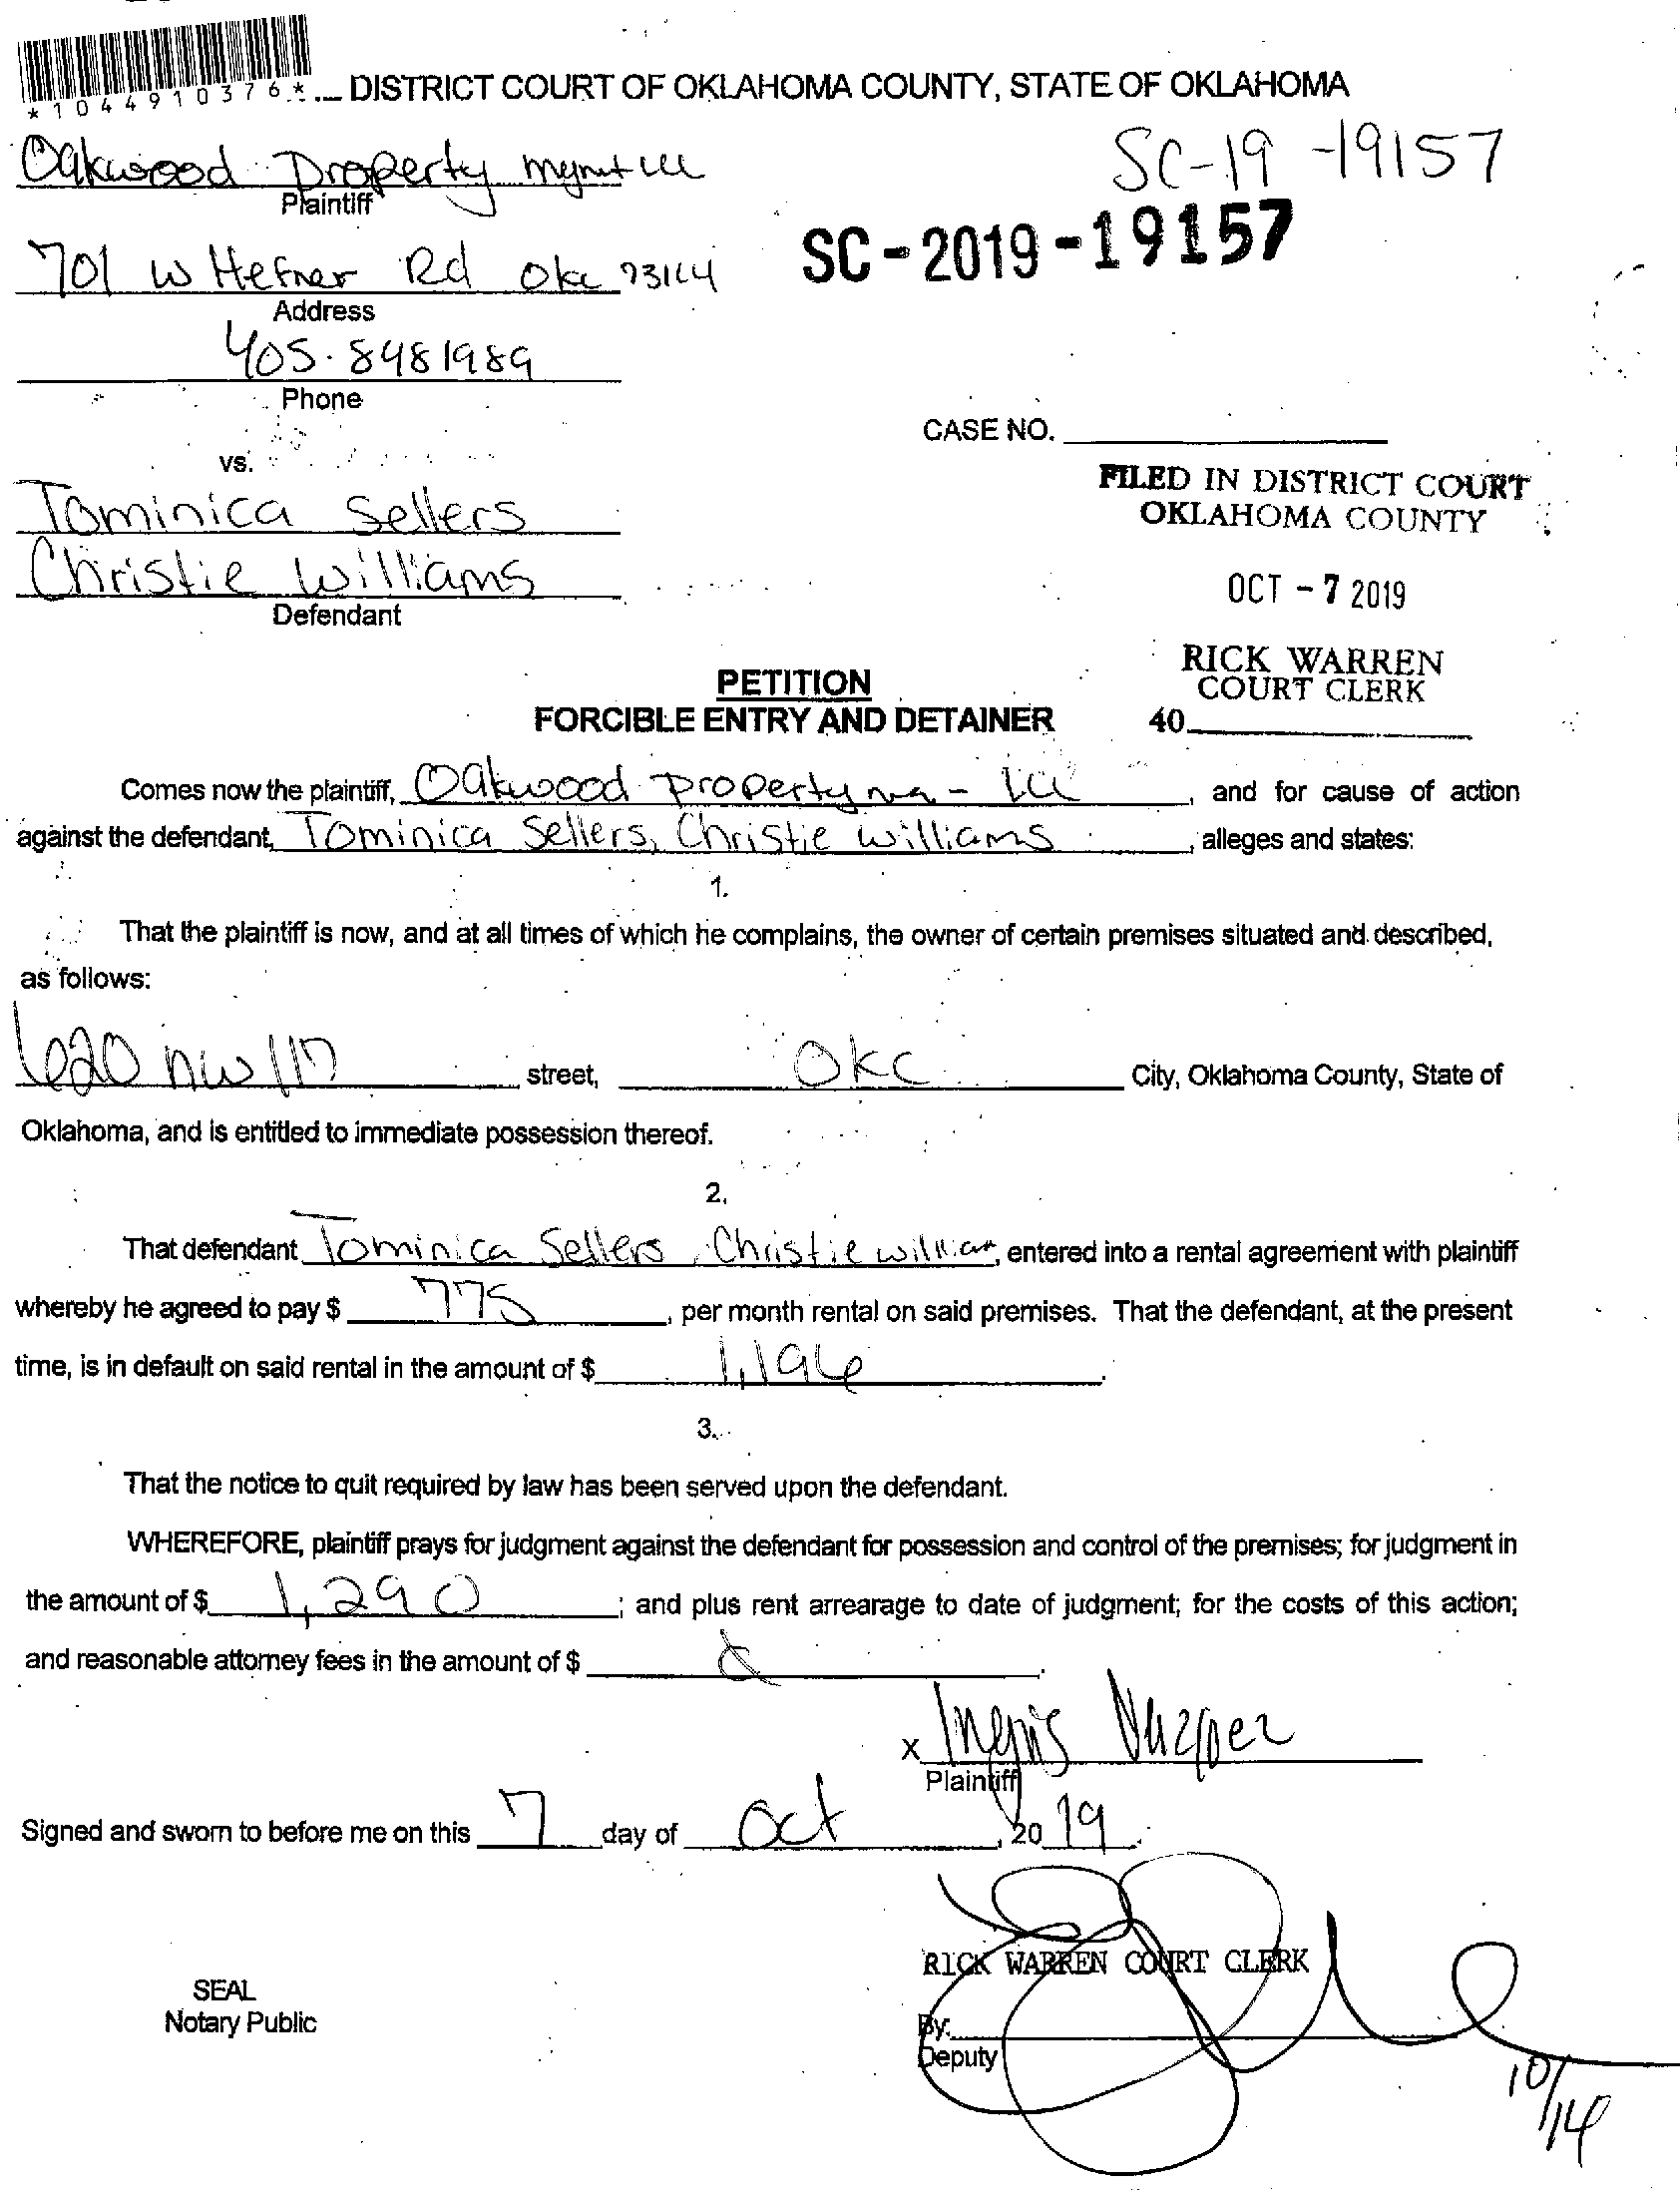 *1044910376*
DISTRICT COURT OF OKLAHOMA COUNTY, STATE OF OKLAHOMA
Oakwood Property mgmt LLC
Plaintiff
SC-19-19157
SC-2019-19157
701 W Hefner Rd OKC 73114
Address
405.8481989
Phone
CASE NO.
vs.
FILED IN DISTRICT COURT
OKLAHOMA COUNTY
Tominica Sellers
Christie Williams
Defendant
OCT - 7 2019
RICK WARREN
COURT CLERK
40
PETITION
FORCIBLE ENTRY AND DETAINER
Comes now the plaintiff, Oakwood property LLC, and for cause of action
against the defendant, Tominica Sellers, Christie Williams, alleges and states:
1.
That the plaintiff is now, and at all times of which he complains, the owner of certain premises situated and described,
as follows:
620 NW 117 street, OKC City, Oklahoma County, State of
Oklahoma, and is entitled to immediate possession thereof.
2.
That defendant Tominica Sellers, Christie William, entered into a rental agreement with plaintiff
whereby he agreed to pay $ 775, per month rental on said premises. That the defendant, at the present
time, is in default on said rental in the amount of $ 1,196.
3.
That the notice to quit required by law has been served upon the defendant.
WHEREFORE, plaintiff prays for judgment against the defendant for possession and control of the premises; for judgment in
the amount of $ 1,290; and plus rent arrearage to date of judgment; for the costs of this action;
and reasonable attorney fees in the amount of $
x
Plaintiff
Signed and sworn to before me on this 7 day of Oct, 2019.
RICK WARREN COURT CLERK
SEAL
Notary Public
By:
Deputy
10/14